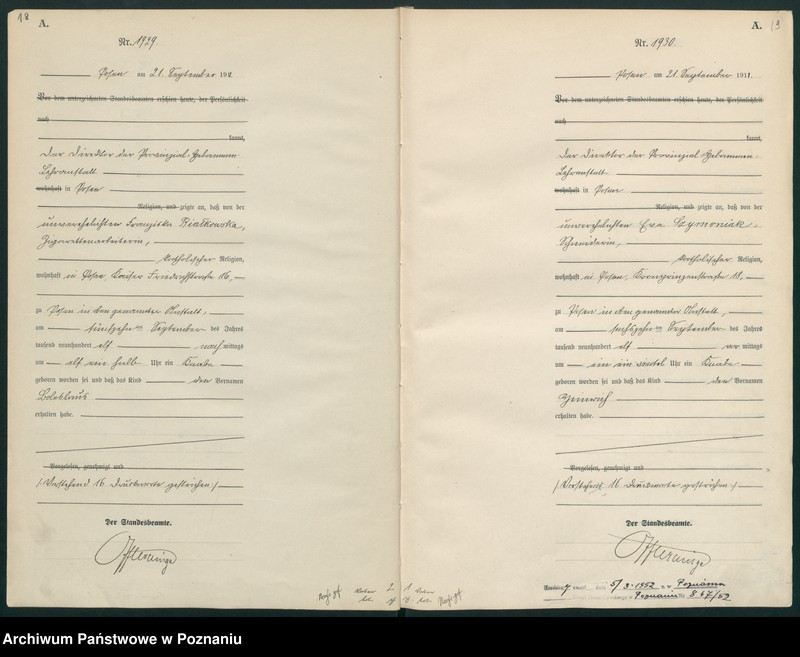 18
A.
Nr. 1929
Posen am 21. September 1911.
Vor dem unterzeichneten Standesbeamten erschien heute, der Persönlichkeit
nach
kannt,
Der Direktor der Provinzial-Hebammen-
Lehranstalt
wohnhaft in Posen
Religion, und zeigte an, daß von der
unverehelichten Franziska Białkowska,
Zigarettenarbeiterin,
katholischer Religion,
wohnhaft in Posen, Kaiser Friedrichstraße 16,
zu Posen in der genannten Anstalt,
am fünfzehnten September des Jahres
tausend neunhundert elf nachmittags
um elf ein halb Uhr ein Knabe
geboren worden sei und daß das Kind den Vornamen
Boleslaus
erhalten habe.
Vorgelesen, genehmigt und
/:Vorstehend 16 Druckworte gestrichen:/
Der Standesbeamte.
A.
19
Nr. 1930.
Posen am 21. September 1911.
Vor dem unterzeichneten Standesbeamten erschien heute, der Persönlichkeit
nach
kannt,
Der Direktor der Provinzial-Hebammen-
Lehranstalt
wohnhaft in Posen
Religion, und zeigte an, daß von der
unverehelichten Eva Szymoniak
Schneiderin,
katholischer Religion,
wohnhaft in Posen, Kronprinzenstraße 18,
zu Posen in der genannten Anstalt,
am sechszehnten September des Jahres
tausend neunhundert elf vormittags
um ein ein viertel Uhr ein Knabe
geboren worden sei und daß das Kind den Vornamen
Heinrich
erhalten habe.
Vorgelesen, genehmigt und
/:Vorstehend 16 Druckworte gestrichen:/
Der Standesbeamte.
5/3. 1952 Poznania
Poznaniu Nr 847/52
Archiwum Państwowe w Poznaniu